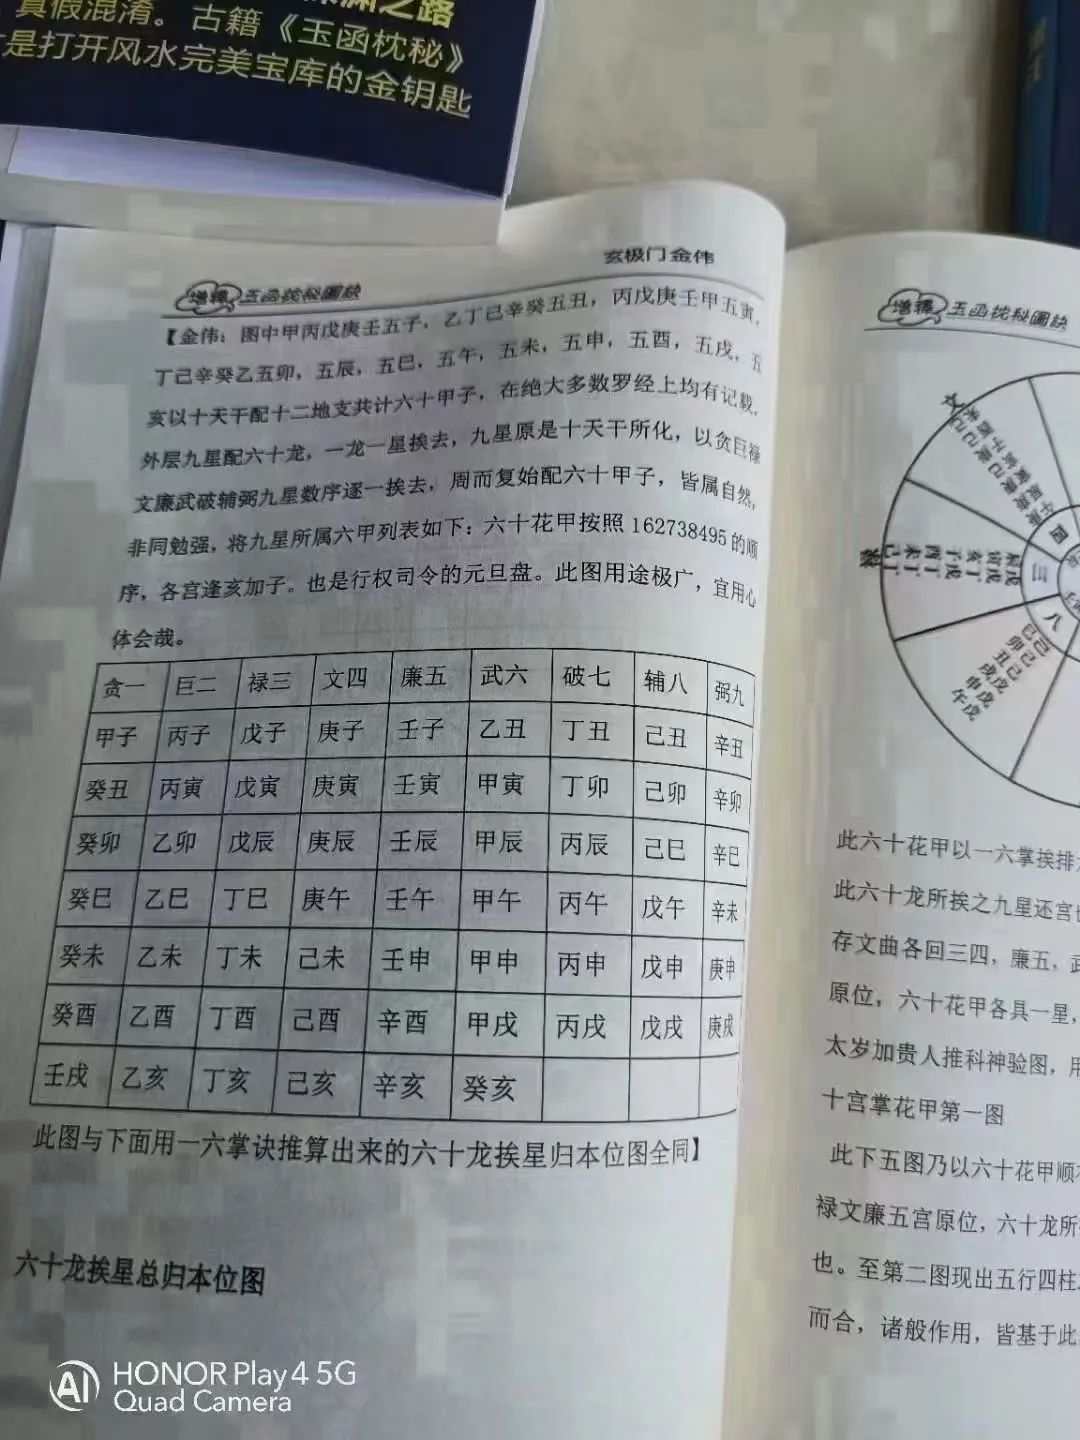 真假混淆。古籍《玉函枕秘》
是打开风水完美宝库的金钥匙
玄极门金伟
增释 玉函枕秘圖訣
【金伟：图中甲丙戊庚壬五子，乙丁己辛癸五丑，丙戊庚壬甲五寅，
丁己辛癸乙五卯，五辰，五巳，五午，五未，五申，五酉，五戌，五
亥以十天干配十二地支共计六十甲子，在绝大多数罗经上均有记载，
外层九星配六十龙，一龙一星挨去，九星原是十天干所化，以贪巨禄
文廉武破辅弼九星数序逐一挨去，周而复始配六十甲子，皆属自然，
非同勉强，将九星所属六甲列表如下：六十花甲按照 162738495 的顺
序，各宫逢亥加子。也是行权司令的元旦盘。此图用途极广，宜用心
体会哉。
贪一 巨二 禄三 文四 廉五 武六 破七 辅八 弼九
甲子 丙子 戊子 庚子 壬子 乙丑 丁丑 己丑 辛丑
癸丑 丙寅 戊寅 庚寅 壬寅 甲寅 丁卯 己卯 辛卯
癸卯 乙卯 戊辰 庚辰 壬辰 甲辰 丙辰 己巳 辛巳
癸巳 乙巳 丁巳 庚午 壬午 甲午 丙午 戊午 辛未
癸未 乙未 丁未 己未 壬申 甲申 丙申 戊申 庚申
癸酉 乙酉 丁酉 己酉 辛酉 甲戌 丙戌 戊戌 庚戌
壬戌 乙亥 丁亥 己亥 辛亥 癸亥
此图与下面用一六掌诀推算出来的六十龙挨星归本位图全同】
六十龙挨星总归本位图
增释 玉函枕秘圖訣
四
三
八
此六十花甲以一六掌挨排
此六十龙所挨之九星还宫
存文曲各回三四，廉五，武
原位，六十花甲各具一星，
太岁加贵人推科神验图，用
十宫掌花甲第一图
此下五图乃以六十花甲顺
禄文廉五宫原位，六十龙所
也。至第二图现出五行四柱
而合，诸般作用，皆基于此
AI HONOR Play4 5G
Quad Camera